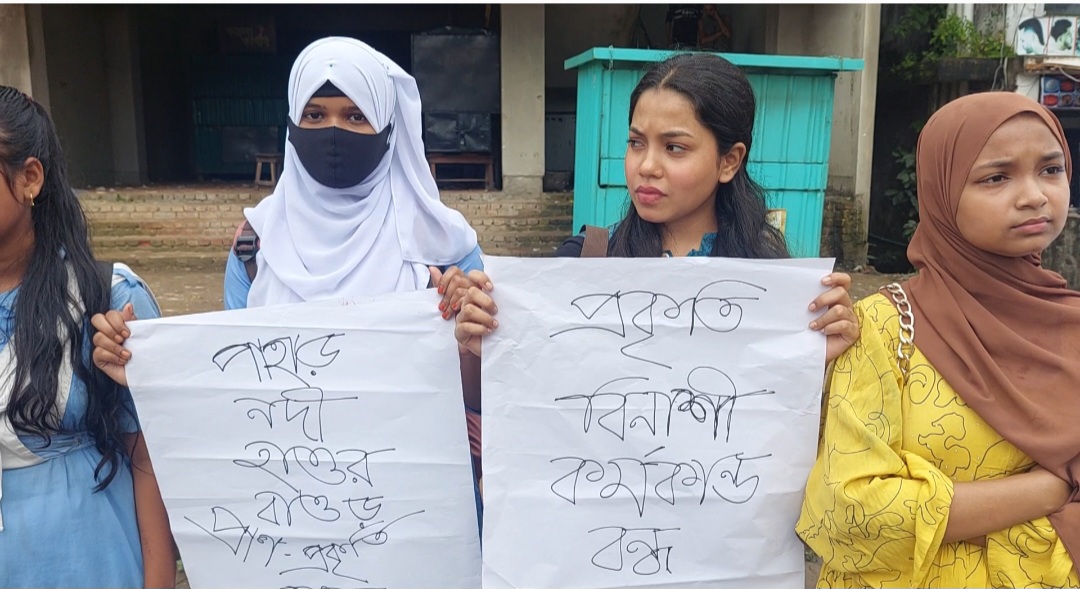 পাহাড়
নদী
হাওর
বাওড়
প্রাণ-প্রকৃতি
প্রকৃতি
বিনাশী
কর্মকান্ড
বন্ধ